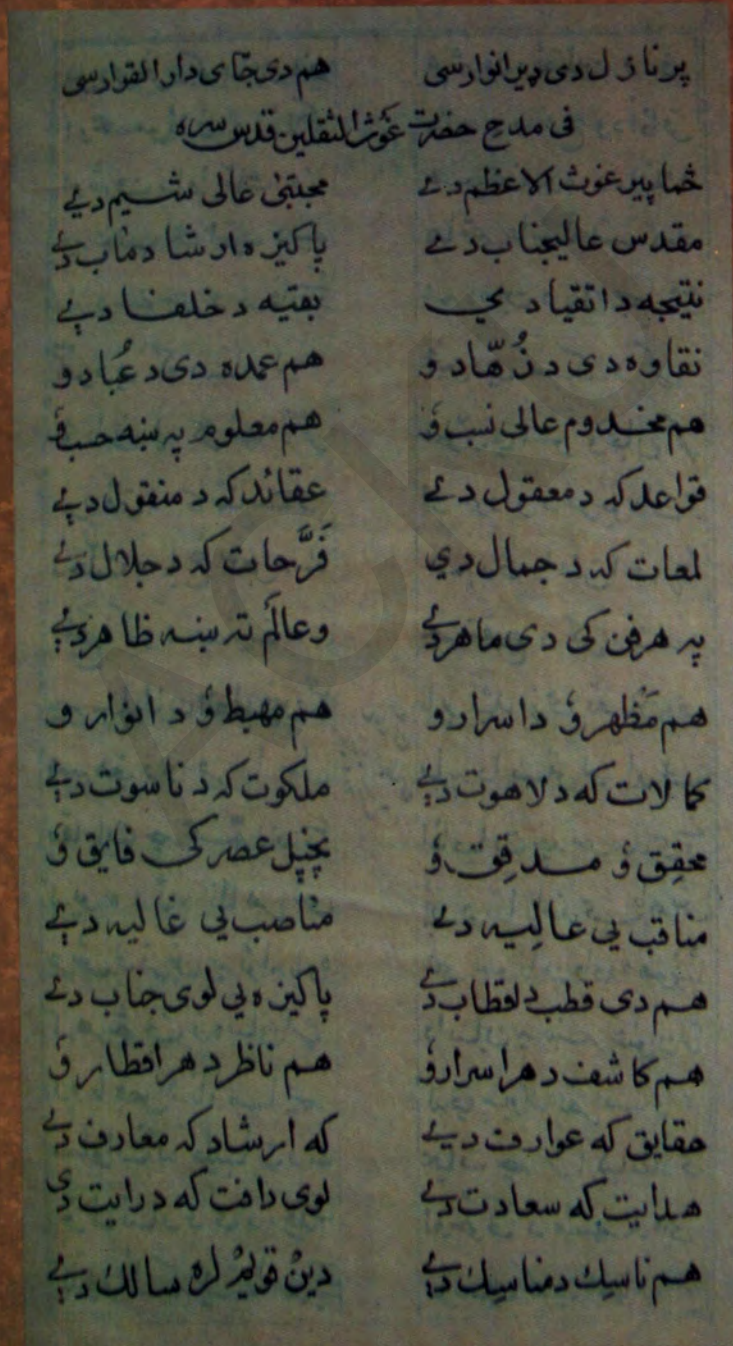 پر نازل دی ډېر انوار سی هم دی جای دار القرار سی
فی مدح حضرت غوث الثقلین قدس سره
څما پیر غوث الاعظم دئے مجتبی عالی شیم دیے
مقدس عالیجناب دئے پاکیزه ارشاد مٰاب دئے
نتیجه د اتقیا دی بقیه د خلفا دیے
نقاوه دی د زُهّاد و هم عمده دی د عُباد و
هم مخدوم عالی نسب ؤ هم معلوم په ښه حسب ؤ
قواعد که د معقول دئے عقائد که د منقول دئے
لمعات که د جمال دي فَرَّحات که د جلال دئے
په هر فن کی دی ماهر دئے و عالَم ته ښه ظاهر دئے
هم مَظهر ؤ د اسرار و هم مهبط ؤ د انوار و
کمالات که د لاهوت دئے ملکوت که د ناسوت دئے
محقِق ؤ مدقِق ؤ پخپل عصر کی فایق ؤ
مناقب یی عالِیه دئے مناصب یی غالیه دئے
هم دی قطب د اقطاب دئے پاکیزه یی لوی جناب دئے
هم کاشف د هر اسرار ؤ هم ناظر د هر اقطار ؤ
حقایق که عوارف دیے که ارشاد که معارف دئے
هدایت که سعادت دئے لوی رافت که درایت دی
هم ناسِك د مناسِك دئے دینْ قویمْ لره سالك دئے